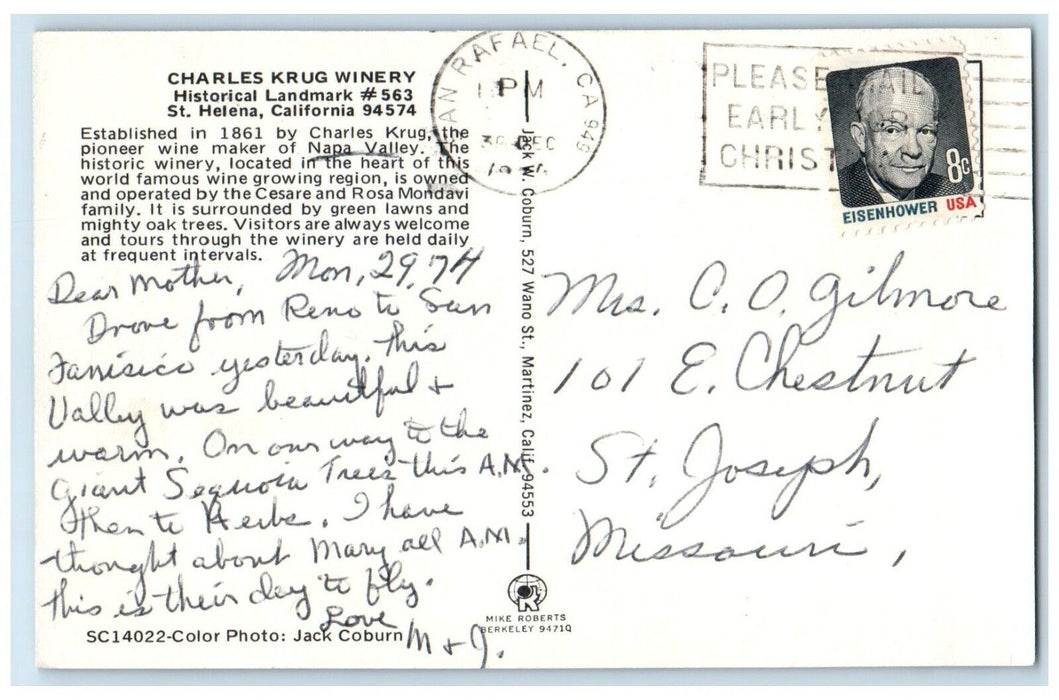 CHARLES KRUG WINERY
Historical Landmark #563
St. Helena, California 94574
Established in 1861 by Charles Krug, the
pioneer wine maker of Napa Valley. The
historic winery, located in the heart of this
world famous wine growing region, is owned
and operated by the Cesare and Rosa Mondavi
family. It is surrounded by green lawns and
mighty oak trees. Visitors are always welcome
and tours through the winery are held daily
at frequent intervals.
Dear Mother, Mon, 29, 74
Drove from Reno to San
Fanisico yesterday. This
Valley was beautiful +
warm. On our way to the
Giant Sequoia Trees this A.M.
then to Herbs. I have
thought about Mary all A.M.
This is their day to fly.
Love
M + J.
SC14022-Color Photo: Jack Coburn
Jack W. Coburn, 527 Wano St., Martinez, Calif. 94553
MIKE ROBERTS
BERKELEY 94710
SAN RAFAEL, CA 949
PM
30 DEC
PLEASE MAIL
EARLY FOR
CHRIST
8c
EISENHOWER USA
Mrs. C. O. Gilmore
101 E. Chestnut
St. Joseph,
Missouri,